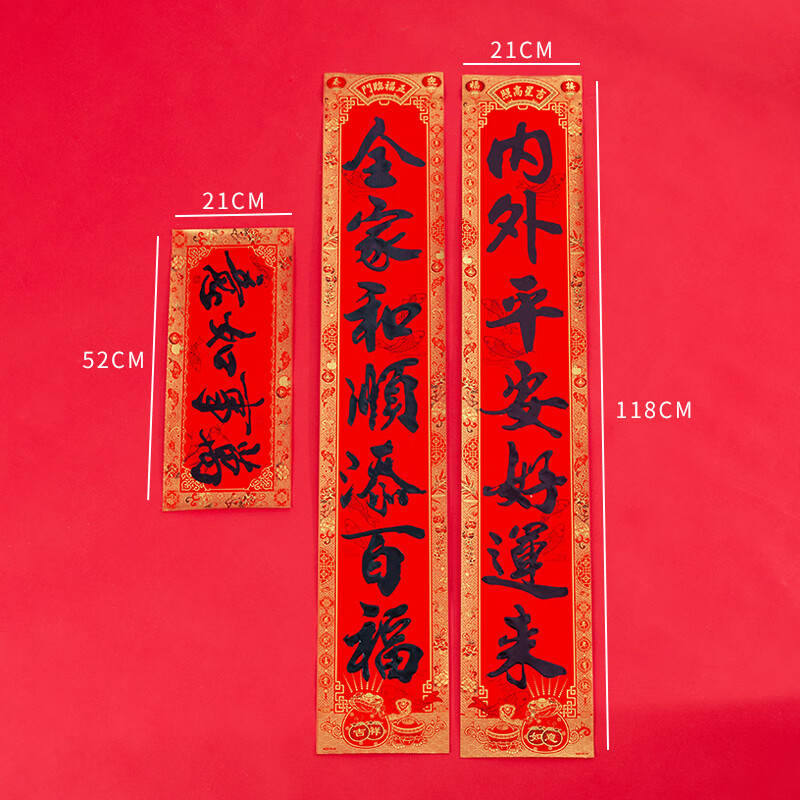 21CM
21CM
52CM
118CM
萬事如意
迎春
五福臨門
全家和順添百福
吉祥
接福
吉星高照
內外平安好運来
如意